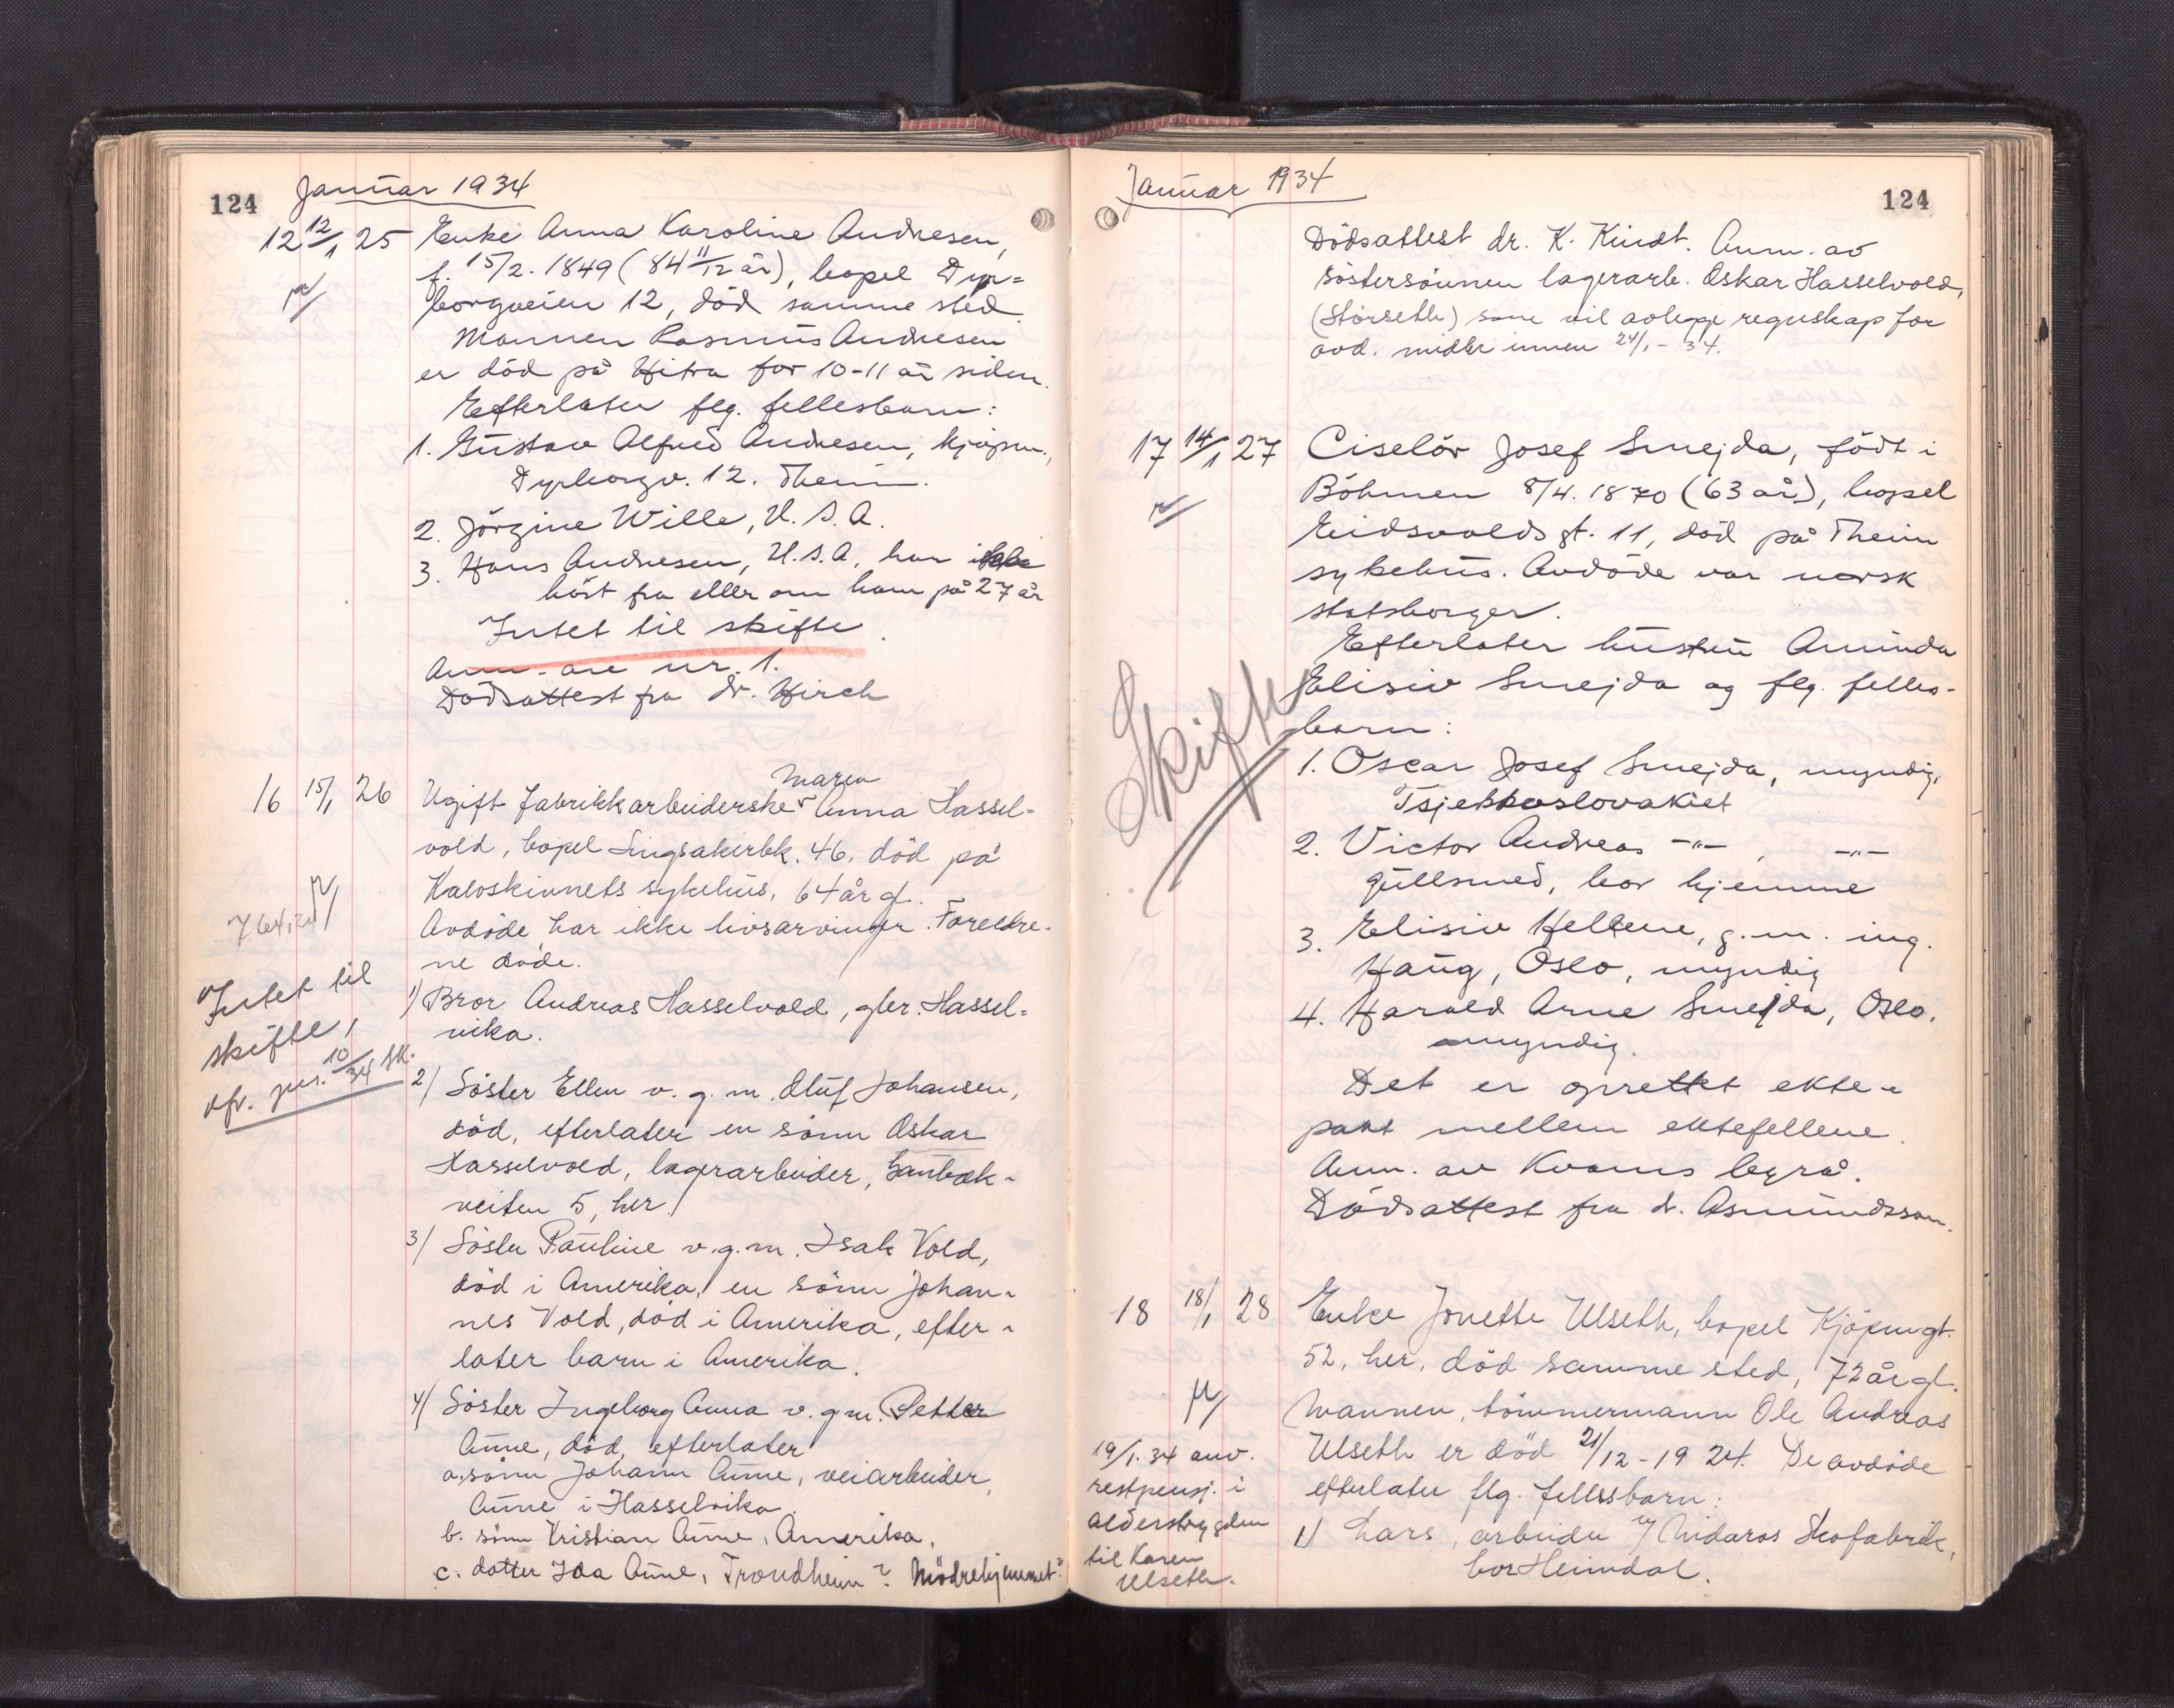 124
Januar 1934
12 12/1 25 Enke Anna Karoline Andresen,
f. 15/2. 1849 (84 11/12 år), bopel Dyr=
borgveien 12, död samme sted.
Mannen Rasmus Andresen
er död på Hitra for 10-11 år siden.
Efterlater flg. fellesbarn:
1. Gustav Alfred Andresen, kjöpm.,
Dyrborgv. 12. Theim.
2. Jörgine Wille, U.S.A.
3. Hans Andresen, U.S.A, har ikke
hört fra eller om ham på 27 år
Intet til skifte.
Anm. av nr. 1.
Dödsattest fra dr. Hirch
16 15/1 26 Ugift fabrikkarbeiderske Maren Anna Hassel=
vold, bopel Singsakerbk. 46, död på
Kalvskinnets sykehus, 64 år gl.
Avdöde har ikke livsarvinger. Foreldre-
ne döde.
764,20
Intet til
skifte,
cfr. jur. 10/34 sk.
1) Bror Andreas Hasselvold, gbr. Hassel=
vika.
2/ Söster Ellen v. g. m. Oluf Johansen,
död, efterlater en sönn Oskar
Hasselvold, lagerarbeider, Saubæk-
veiten 5, her.
3/ Söster Pauline v.g.m. Isak Vold,
död i Amerika, en sönn Johan-
nes Vold, död i Amerika, efter-
later barn i Amerika.
4/ Söster Ingeborg Anna v. gm. Petter
Aune, död, efterlater
a. sönn Johann Aune, veiarbeider,
Aune i Hasselvika.
b. sönn Kristian Aune, Amerika.
c. datter Ida Aune, Trondheim? Mödrehjemmet?
Januar 1934
124
Dödsattest dr. K. Kindt. Anm. av
söstersönnen lagerarb. Oskar Hasselvold,
(Störseth) som vil avlegge regnskap for
avd. midler innen 24/1 - 34.
17 14/1 27 Ciselör Josef Smejda, födt i
Böhmen 8/4. 1870 (63 år), bopel
Eidsvolds gt. 11, död på Theim
sykehus. Avdöde var norsk
statsborger.
Efterlater hustru Aminda
Elisiv Smejda og flg. felles-
barn:
Skifte
1. Oscar Josef Smejda, myndig,
Tsjekkoslovakiet
2. Victor Andreas -"-, -"-
gullsmed, bor hjemme
3. Elisiv Hellene, g.m. ing.
Haug, Oslo, myndig
4. Harald Arne Smejda, Oslo.
myndig.
Det er oprettet ekte-
pakt mellem ektefellene.
Anm. av Kvams byrå.
Dödsattest fra dr. Asmundsson.
18 18/1 28 Enke Jonette Ulseth, bopel Kjöpmgt.
52, her, död samme sted, 72 år gl.
Mannen, tömmermann Ole Andreas
Ulseth er död 21/12 - 1924. De avdöde
efterlater flg. fellesbarn:
1) Lars, arbeider v/ Nidaros Skofabrik,
bor Heimdal.
19/1. 34 anv.
restpensj. i
alderstrygden
til Karen
Ulseth.